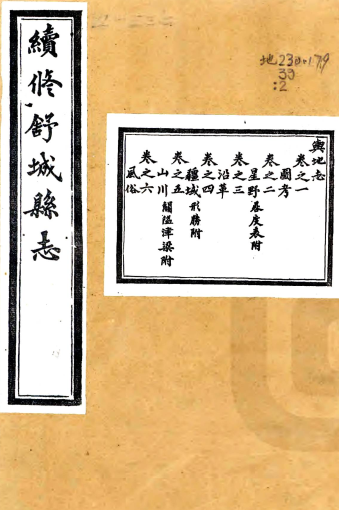 續修舒城縣志
地230.179
30
:2
輿地志
卷之一
圖考
卷之二
星野晷度表附
卷之三
沿革
卷之四
疆域形勝附
卷之五
山川關隘津梁附
卷之六
風俗